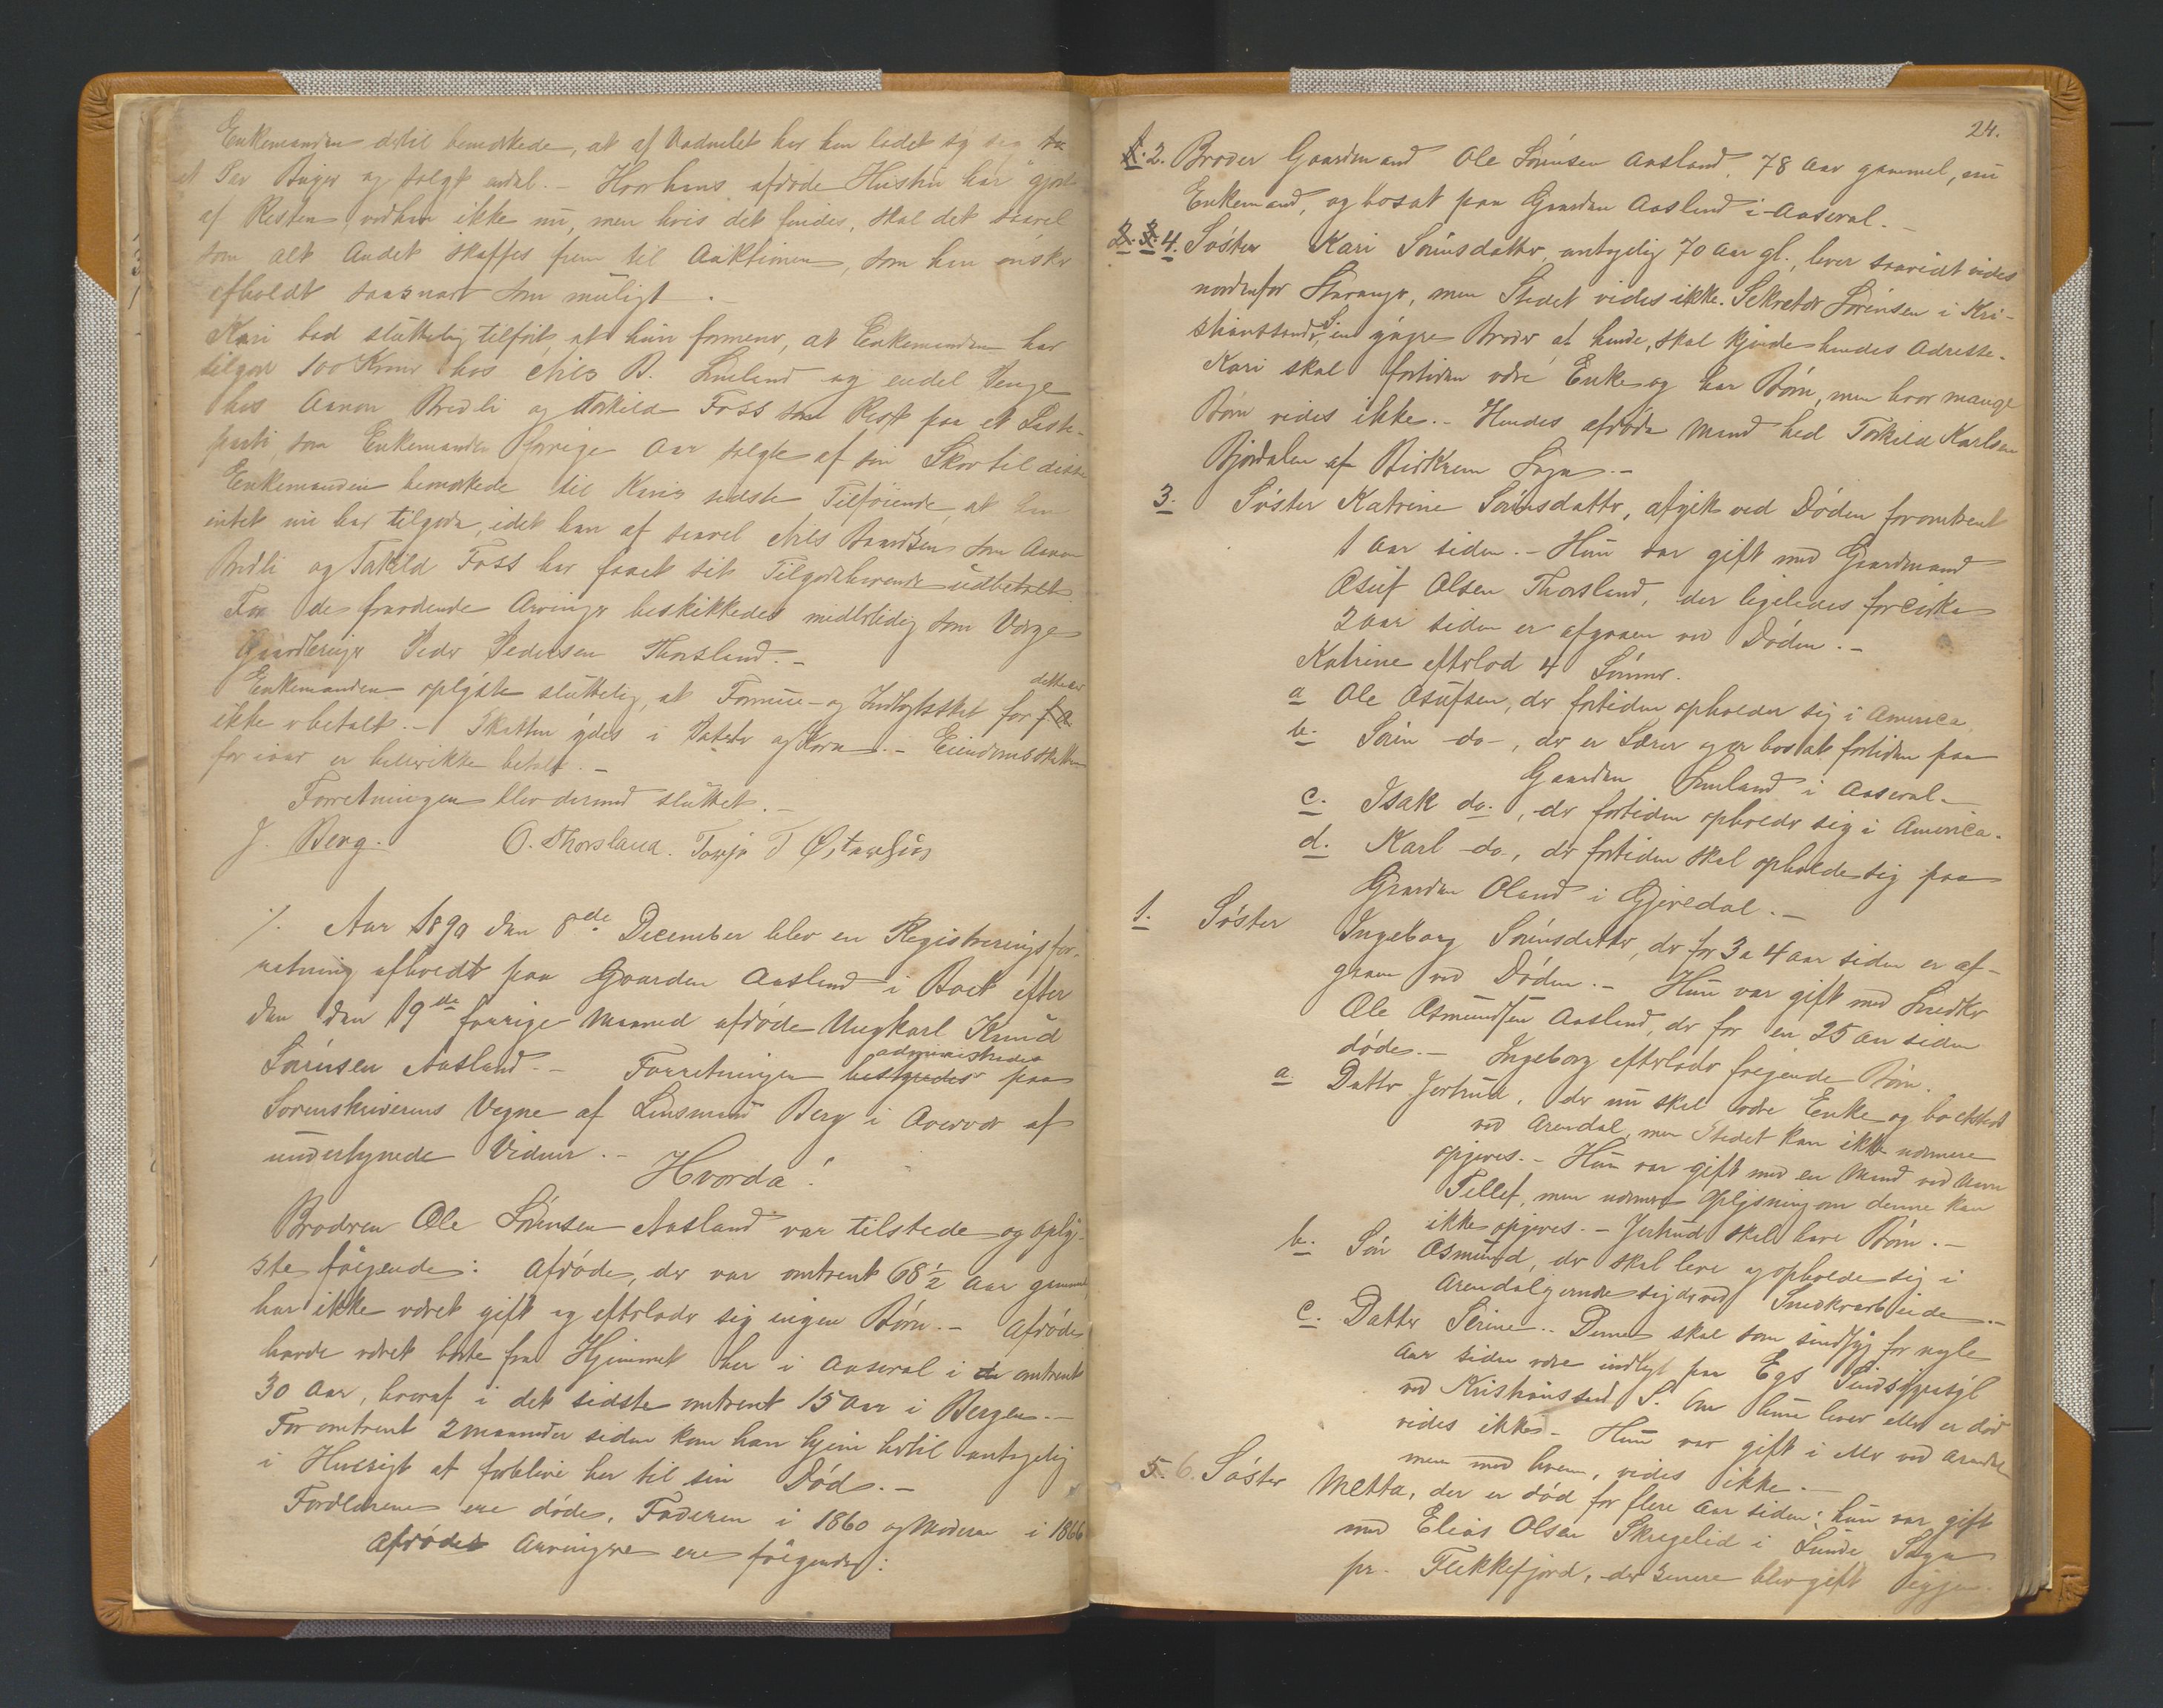 Enkemanden dertil bemærkede, at af Vadmelet har han ladet sy sig
et Par Buxer og solgt endel. – Hvor hans afdøde Hustru har gjort
af Resten ved han ikke nu, men hvis det findes, skal det saavel
som alt Andet skaffes frem til Auktionen, som han ønsker
afholdt saasnart som muligt. –
Kari bad sluttelig tilført, at hun formener, at Enkemanden har
tilgode 100 Kroner hos Nils B. Lineland og endel Penge
hos Aanon Bredli og Torkild Foss som Rest paa et Last-
parti, som Enkemanden forrige Aar solgte af sin Skov til disse
Enkemanden bemærkede til Karis sidste Tilføiende, at han
intet nu har tilgode, idet han af saavel Nils Baardsen som Aanon
Bredli og Torkild Foss har faaet sit Tilgodehavende udbetalt.
For de fraværende Arvinger beskikkedes midlertidig som Værge
Gaardbruger Peder Pedersen Thorsland. –
Enkemanden oplyste sluttelig, at Formue- og Indtægtsskat for dette Aar
ikke er betalt. – Skatten ydes i Havre og Korn. – Eiendomsskatten
for iaar er heller ikke betalt. –
Forretningen blev dermed sluttet. –
J. Berg. O. Thorsland. Tarje T Østerhus
7. Aar 1890 den 8de December blev en Registreringsfor-
retning afholdt paa Gaarden Aasland i Boet efter
den den 19de forrige Maaned afdøde Ungkarl Knud
Sørensen Aasland. – Forretningen bestyredes administredes paa
Sorenskriverens Vegne af Lensmand Berg i Overvær af
undertegnede Vidner. –
Hvorda!
Broderen Ole Sørensen Aasland var tilstede og oply-
ste følgende: Afdøde, der var omtrent 68 1/2 Aar gammel
har ikke været gift og efterlader sig ingen Børn. – Afdøde
havde været borte fra Hjemmet her i Aaseral i omtrent
30 Aar, hvoraf i det sidste omtrent 15 Aar i Bergen. –
For omtrent 2 maaneder siden kom han hjem hertil antagelig
i Hensigt at forblive her til sin Død. –
Forældrene ere døde, Faderen i 1860 og Moderen i 1866
Afdødes Arvinger ere følgende:
24.
1. 2. Broder Gaardmand Ole Sørensen Aasland, 78 Aar gammel, nu
Enkemand, og bosat paa Gaarden Aasland i Aaseral. –
2. 3. 4. Søster Kari Sørensdatter, antagelig 70 Aar gl., lever saavidt vides
nordenfor Stavanger, men Stedet vides ikke. Sekretær Sørensen i Kri-
stianssand S, en yngre Broder af hende, skal kjende hendes Adresse.
Kari skal fortiden være Enke og har Børn, men hvor mange
Børn vides ikke. – Hendes afdøde Mand hed Torkild Karlsen
Bjordalen af Birkrem Sogn. –
3. Søster Katrine Sørensdatter, afgik ved Døden for omtrent
1 Aar siden. – Hun var gift med Gaardmand
Osuf Olsen Thorsland, der ligeledes for cirka
2 aar siden er afgaaen ved Døden. –
Katrine efterlod 4 Sønner.
a Ole Osufsen, der fortiden opholder sig i America.
b. Søren – do –, der er Lærer og er bosat fortiden paa
Gaarden Lineland i Aaseral. –
c. Isak do., der fortiden opholder sig i America.
d. Karl – do –, der fortiden skal opholde sig paa
Gaarden Oland i Gjøvedal. –
1. Søster Ingeborg Sørensdatter, der for 3 a 4 aar siden er af-
gaaen ved Døden. – Hun var gift med Snedker
Ole Osmundsen Aasland, der for en 25 Aar siden
døde. – Ingeborg efterlader følgende Børn.
a. Datter Jertrud, der nu skal være Enke og bosat
ved Arendal, men Stedet kan ikke nærmere
opgives. – Hun var gift med en Mand ved Navn
Tellef, men nærmere Oplysning om denne kan
ikke opgives. – Jertrud skal have Børn. –
b. Søn Osmund, der skal leve og opholde sig i
Arendal, ernærer sig der ved Snedkerarbeide. –
c. Datter Serine. – Denne skal som sindssyg for nogle
Aar siden være indlagt paa Egs Sindssygeasyl
ved Kristianssand S. Om hun lever eller er død
vides ikke. – Hun var gift i ved Arendal
men med hvem, vides ikke. –
5. 6. Søster Metta, der er død for flere Aar siden; hun var gift
med Elias Olsen Skregelid i Lunde Sogn
pr. Flekkefjord, der senere blev gift igjen.